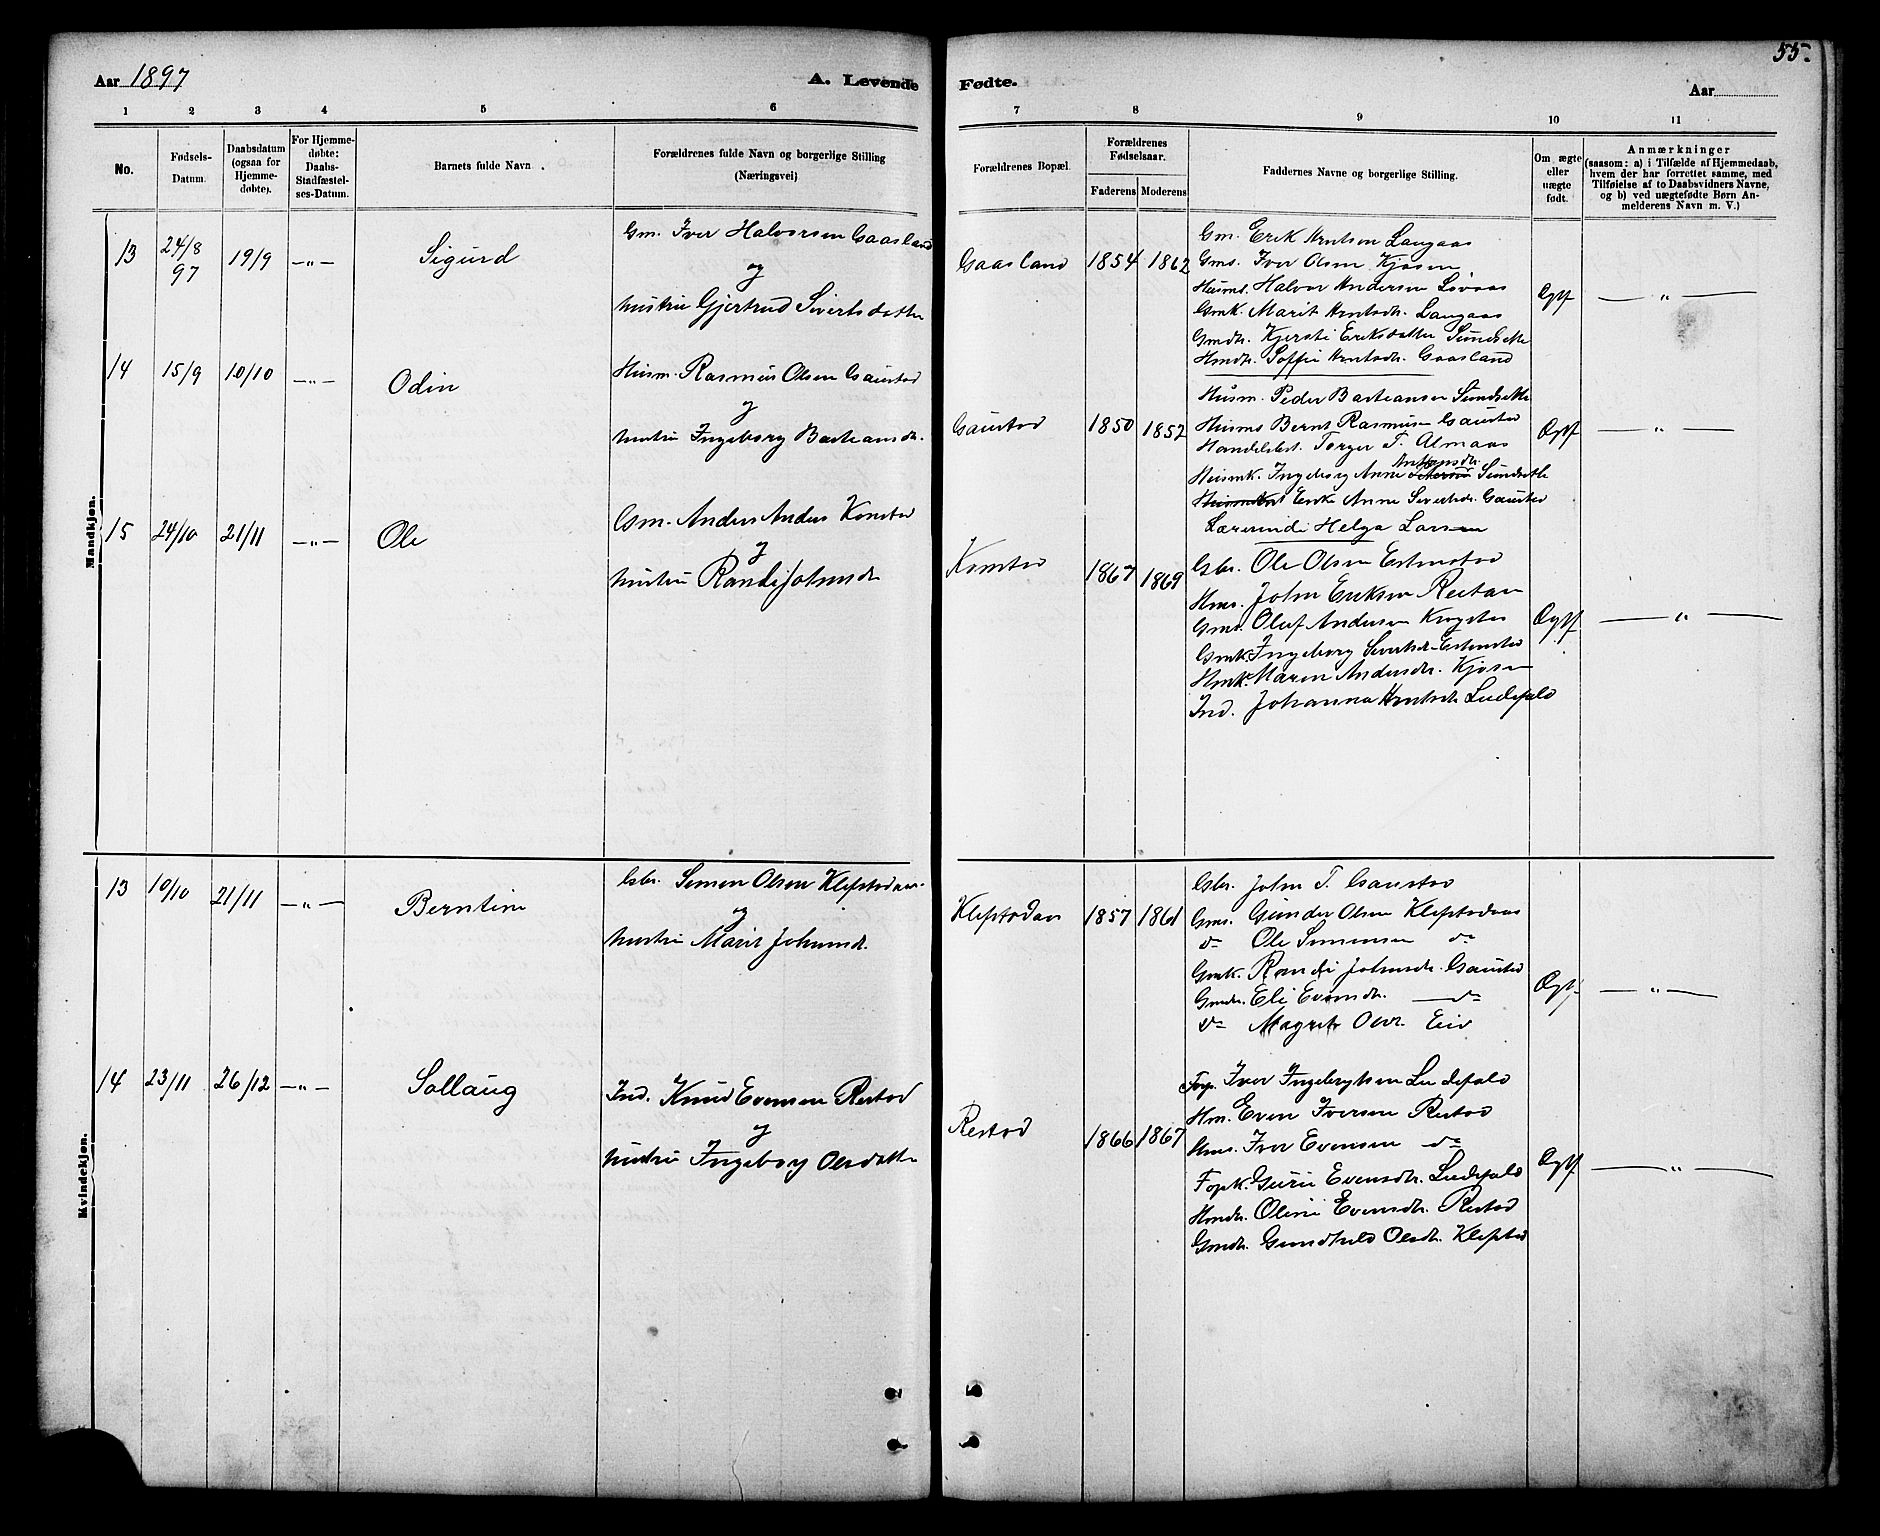 Aar 1897
A. Levende
Fødte.
Aar
55.
1 2 3 4 5 6 7 8 9 10 11
No.
Fødsels-
Datum.
Daabsdatum
(ogsaa for
Hjemme-
døbte).
For Hjemme-
døbte:
Daabs-
Stadfæstel-
ses-Datum.
Barnets fulde Navn.
Forældrenes fulde Navn og borgerlige Stilling
(Næringsvei)
Forældrenes Bopæl.
Forældrenes
Fødselsaar.
Faderens Moderens
Faddernes Navne og borgerlige Stilling.
Om ægte
eller
uægte
født.
Anmærkninger
(saasom: a) i Tilfælde af Hjemmedaab,
hvem der har forrettet samme, med
Tilføielse af to Daabsvidners Navne,
og b) ved uægtefødte Børn An-
melderens Navn m. V.)
Mandkjøn.
13 24/8 97 19/9 —„— Sigurd
Gm. Iver Halvorsen Gaasland
og
hustru Gjertrud Sivertsdatter
Gaasland 1854 1862
Gm. Erik Arntsen Langaas
Gms. Iver Olsen Kjøsen
Husms. Halvor Andersen Løvaas
Gmk. Marit Arntsdr. Langaas
Gmdr. Kjersti Eriksdatter Sundsette
Hmdr. Soffie Arntsdr. Gaasland
Ægtf —„—
14 15/9 10/10 —„— Odin
Husm. Rasmus Olsen Gaustad
og
hustru Ingeborg Bastiansdr.
Gaustad 1850 1852
Husm. Peder Bastiansen Sundsette
Husms Bernt Rasmusen Gaustad
Handelsbest. Torger T. Almaas
Husmk. Ingeborg Anne Antonsdr. Sundsette
Enke Anne Sivertsdr. Gaustad
Lærerinde Helga Larsen
Ægtf —„—
15 24/10 21/11 —„— Ole
Gsm. Anders Anders Konstad
og
hustru Randi Johnsdr
Konstad 1867 1869
Gbr. Ole Olsen Estenstad
Hms. John Eriksen Restad
Gms. Oluf Andersen Krogstad
Gmk. Ingeborg Sivertsdr Estenstad
Hmk. Maren Andersdr. Kjøsen
Ind. Johanna Arntsdr Ludefald
Ægtf —„—
Kvindekjøn.
13 10/10 21/11 —„— Berntine
Gbr. Simon Olsen Kleftødaas
og
hustru Marit Johnsdr.
Kleftødaas 1857 1861
Gbr. John T. Gaustad
Gms. Gunder Olsen Kleftødaas
do Ole Simonsen do
Gmk. Randi Johnsdr. Gaustad
Gmdr. Eli Evensdr. — do
do Magrete Olsdr. Eid
Ægtf —„—
14 23/11 26/12 —„— Sollaug
Ind. Knud Evensen Restad
og
hustru Ingeborg Olsdatter
Restad 1866 1867
Forp. Iver Ingebrigtsen Ludefald
Hm. Even Iversen Restad
Hms. Iver Evensen do
Fopk. Guru Evensdtr. Ludefald
Hmdr. Oline Evensdtr. Restad
Gmdr. Gundhild Olsdtr. Klefstad
Ægtf —„—